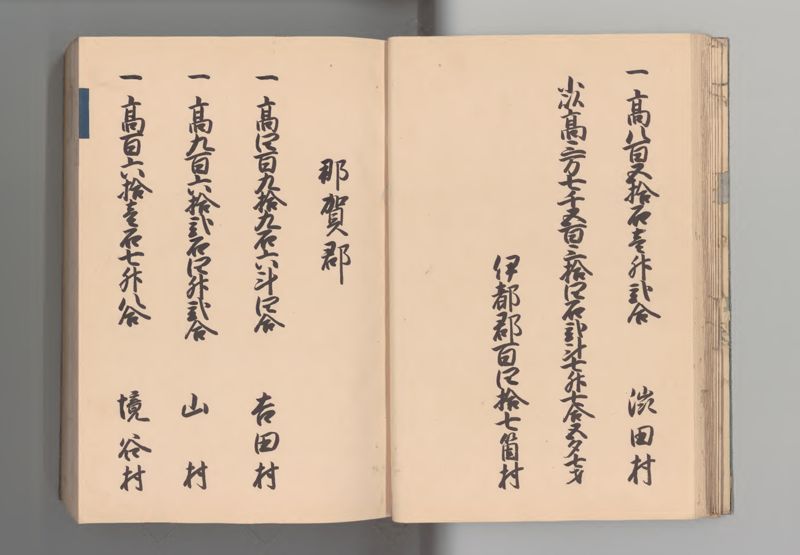 一高八百五拾石壱升弐合 渋田村
小以高三万七千五百三拾四石弐斗七升七合五夕七才
伊都郡百四拾七箇村
那賀郡
一高四百九拾九石六斗四合 吉田村
一高九百六拾弐石四升弐合 山村
一高百六拾壱石七升八合 境谷村